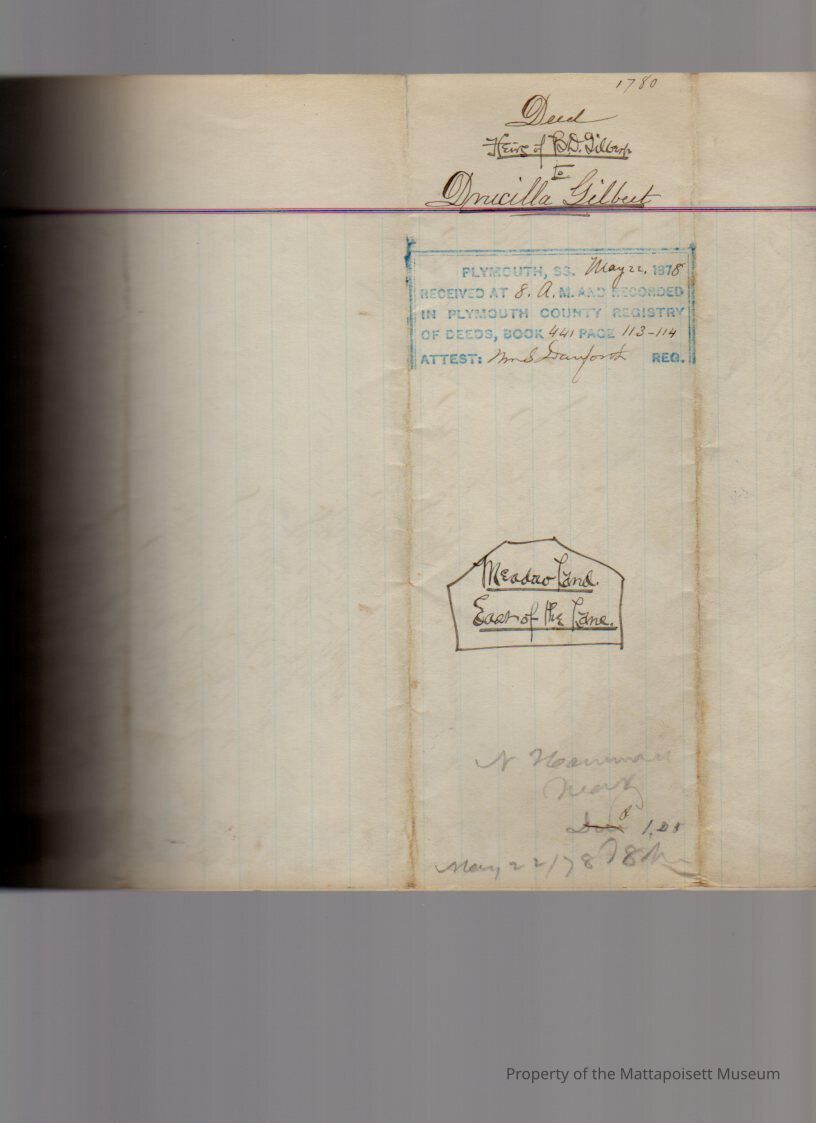 1780
Deed
Heirs of B.D. Gilbert
to
Drucilla Gilbert
PLYMOUTH, SS. May 22, 1878
RECEIVED AT 8. A. M. AND RECORDED
IN PLYMOUTH COUNTY REGISTRY
OF DEEDS, BOOK 441 PAGE 113-114
ATTEST: Wm S. Danforth REG.
Meadow Land.
East of the Lane.
N
May 22/78 8
Property of the Mattapoisett Museum